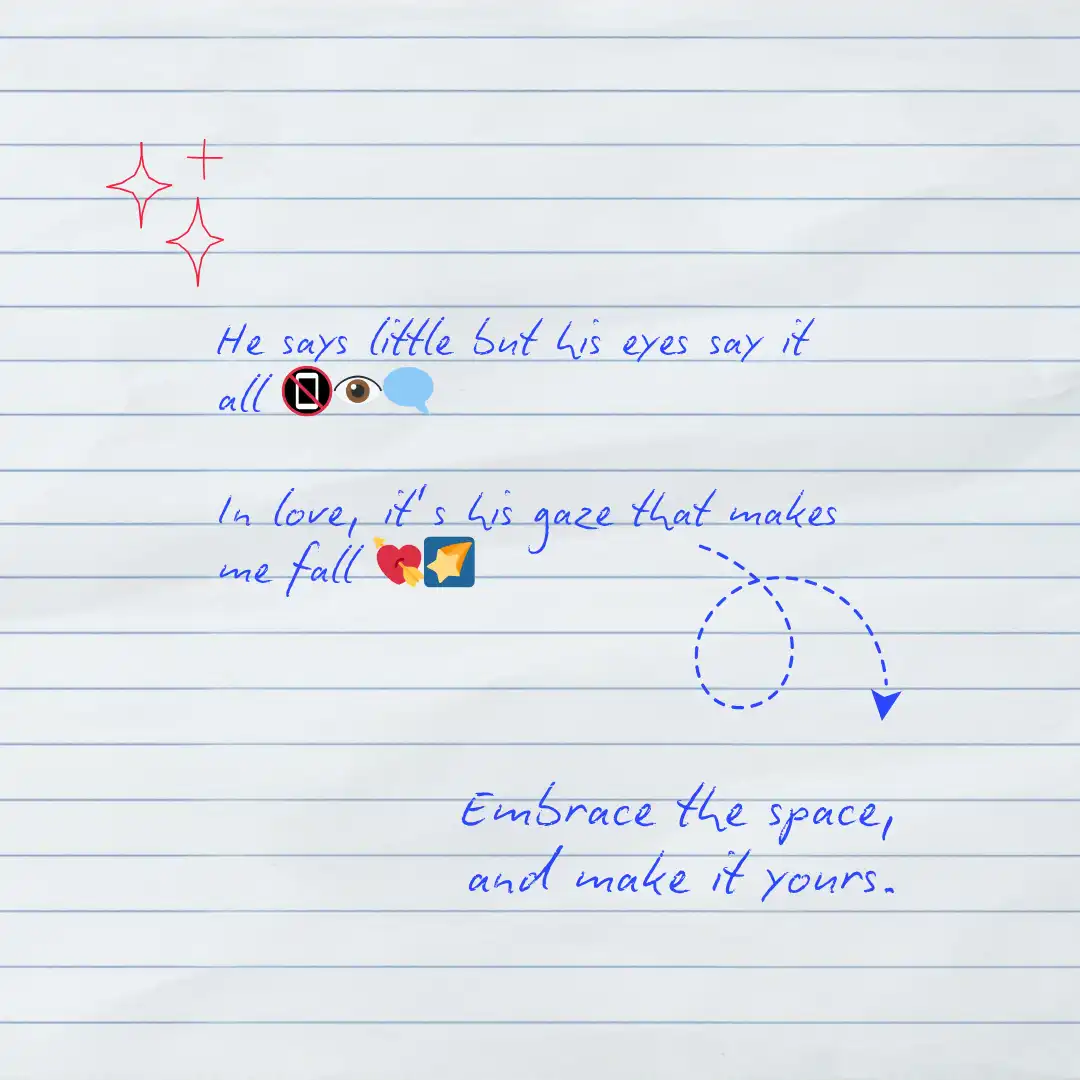 He says little but his eyes say it
all 📵👁️🗨️
In love, it's his gaze that makes
me fall 💘🌠
Embrace the space,
and make it yours.